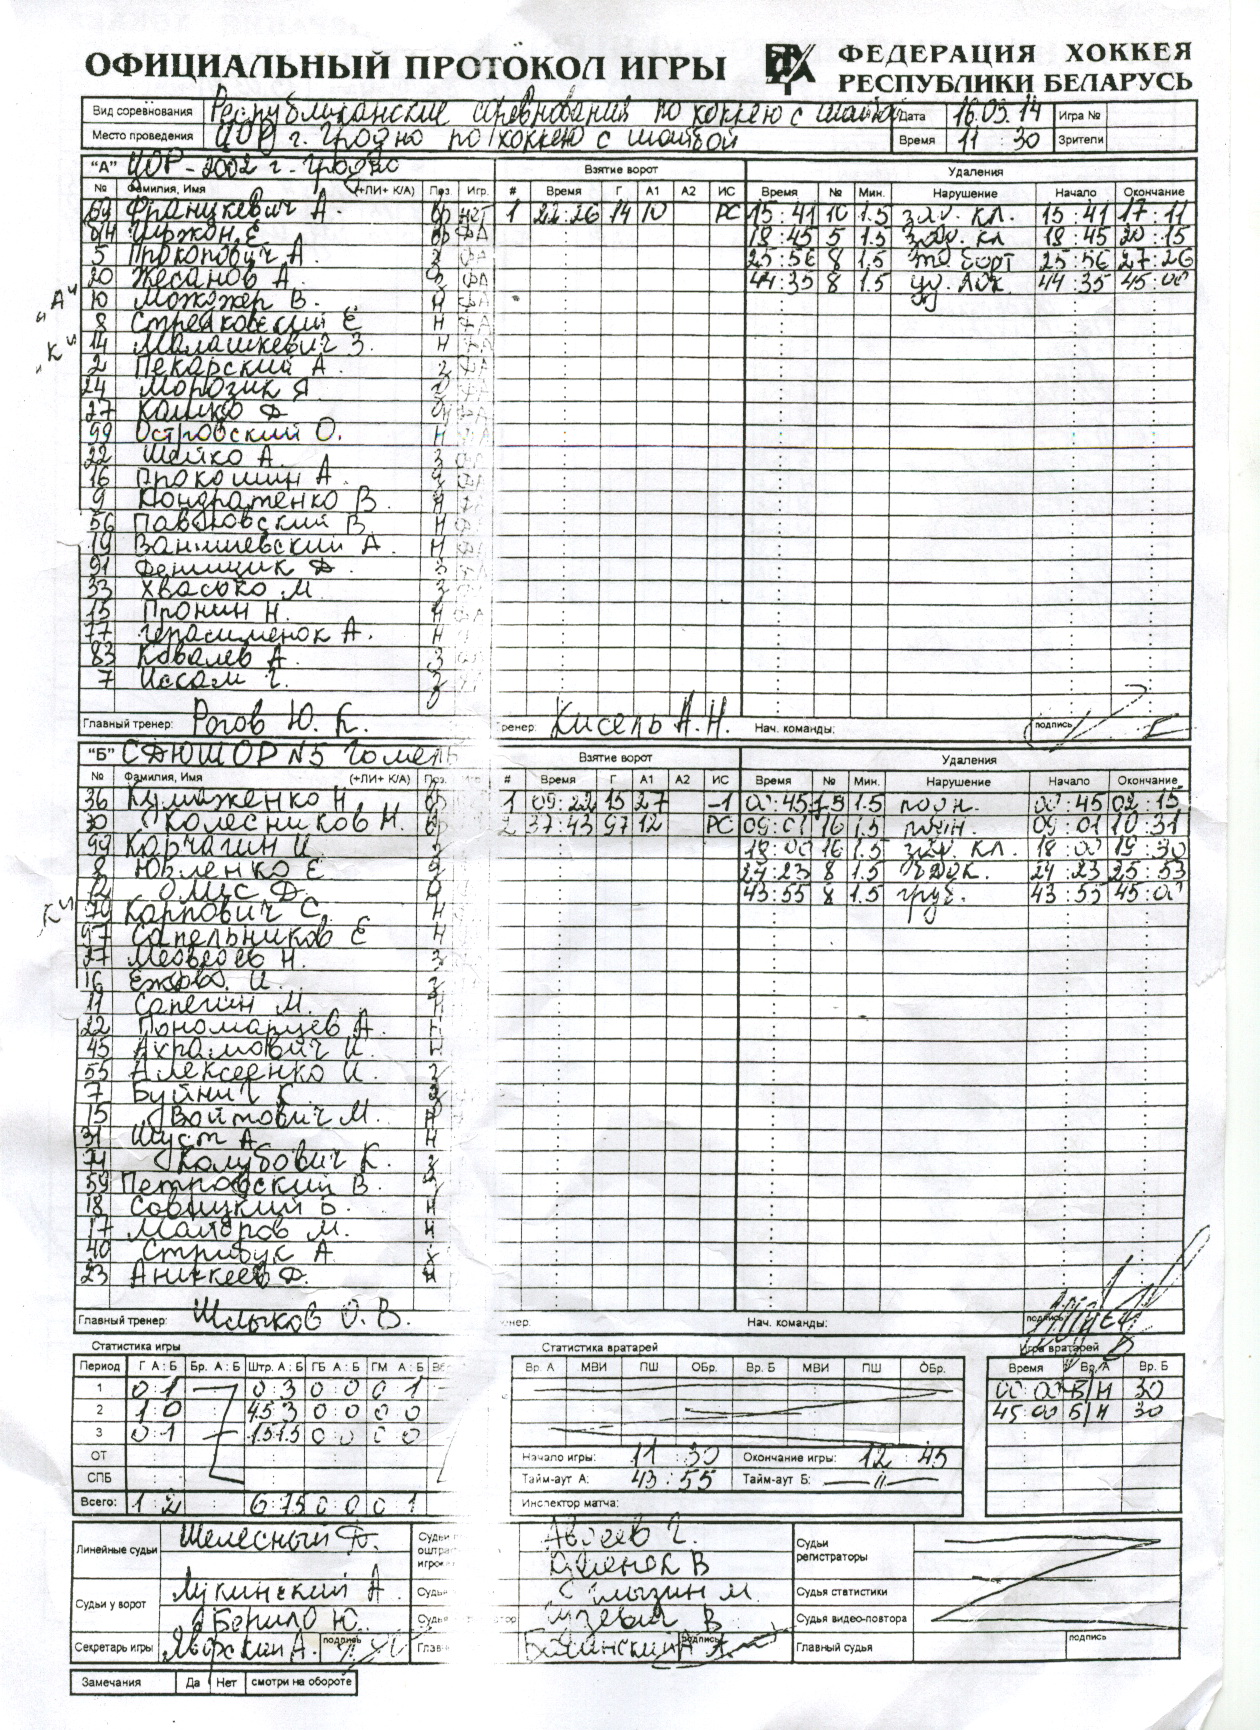 ОФИЦИАЛЬНЫЙ ПРОТОКОЛ ИГРЫ
ФЕДЕРАЦИЯ ХОККЕЯ
РЕСПУБЛИКИ БЕЛАРУСЬ
Вид соревнования Республиканские соревнования по хоккею с шайбой Дата 16.03.14 Игра №
Место проведения ЦОР г. Гродно по хоккею с шайбой Время 11 : 30 Зрители
"А" ЦОР-2002 г. Гродно Взятие ворот Удаления
№ Фамилия, Имя (+ЛИ+ К/А) Поз. Игр. # Время Г А1 А2 ИС Время № Мин. Нарушение Начало Окончание
Францкевич А. 1 22:26 14 10 РС 15:41 10 1.5 зад. кл. 15:41 17:11
Ижон Е 18:45 5 1.5 зад. кл 18:45 20:15
5 Прокопович А 25:56 8 1.5 25:56 27:26
20 Жесанов А. 44:35 8 1.5 44:35 45:00
"А" 10 Можджер В. Н
8 Стрелковский Е Н
"К" 14 Малашкевич З. Н
2 Пекарский А. З
24 Морозик Я
27 Кошко Д
99 Островский О. Н
22 Шейко А. З
16 Прокошин А
9 Кондратенко В
56 Павловский В Н
19 А. Н
91 Фенищик Д. З
33 Хвасько М. З
15 Пронин Н. Н
77 Герасименок А. Н
83 Ковалев А. З
7 Иссам Г.
Главный тренер: Рогов Ю. К. Кисель А.Н. Нач. команды: подпись
"Б" СДЮШОР №5 Гомель Взятие ворот Удаления
№ Фамилия, Имя (+ЛИ+ К/А) Поз. # Время Г А1 А2 ИС Время № Мин. Нарушение Начало Окончание
36 Н. 1 09:22 15 27 -1 00:45 1.5 00:45 02:15
30 Колесников Н. 2 37:43 97 12 РС 09:01 16 1.5 09:01 10:31
99 Корчагин И. 18:00 16 1.5 зад. кл. 18:00 19:30
8 Юрленко Е 24:23 8 1.5 24:23 25:53
Омис Д. 43:55 8 1.5 груб. 43:55 45:00
Карпович С. Н
97 Сапельников Е Н
27 Медведев Н. З
16 И. З
11 Сапегин М. Н
22 Пономарцев А. Н
45 Ахрамович И. Н
55 Алексеенко И. З
7 Буйнич К. З
15 Войтович М. Н
31 Шуст А. Н
Колубович К. З
59 Петровский В
18 Б. Н
17 Майоров М. Н
40 Стрибук А
23 Аникеев Д. Н
Главный тренер: Шлыков О. В. Нач. команды: подпись
Статистика игры Статистика вратарей Игра вратарей
Период Г А : Б Бр. А : Б Штр. А : Б ГБ А : Б ГМ А : Б Вр. А МВИ ПШ ОБр. Вр. Б МВИ ПШ ОБр. Время Вр. А Вр. Б
1 0:1 0:3 0:0 0:1 00:00 30
2 1:0 4.5:3 0:0 0:0 45:00 30
3 0:1 1.5:1.5 0:0 0:0
ОТ Начало игры: 11 : 30 Окончание игры: 12 : 45
СПБ Тайм-аут А: 43 : 55 Тайм-аут Б:
Всего: 1:2 6:7.5 0:0 0:1 Инспектор матча:
Линейные судьи Шелесный Авдеев Г. Судьи регистраторы
В
Судьи у ворот Лукинский А Судья статистики
Борило Ю. В. Судья видео-повтора
Секретарь игры Яворский А. подпись подпись Главный судья подпись
Замечания Да Нет смотри на обороте